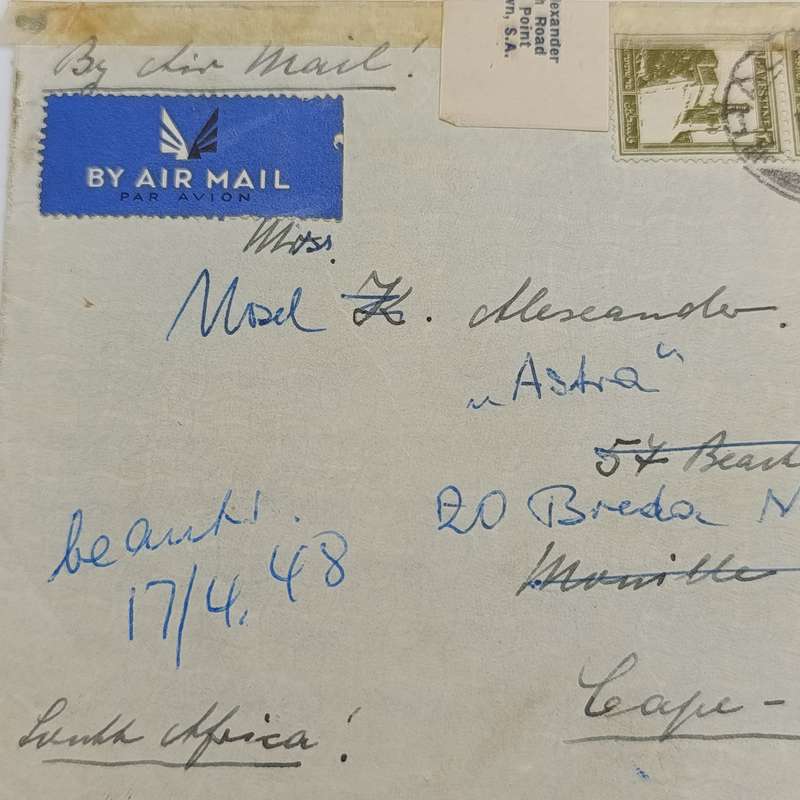 By Air Mail!
exander
h Road
Point
wn, S.A.
BY AIR MAIL
PAR AVION
Miss.
K. Alexander.
„Astra"
57 Beach
20 Breda
Mouille
beantw.
17/4.48
Cape-
South Africa!